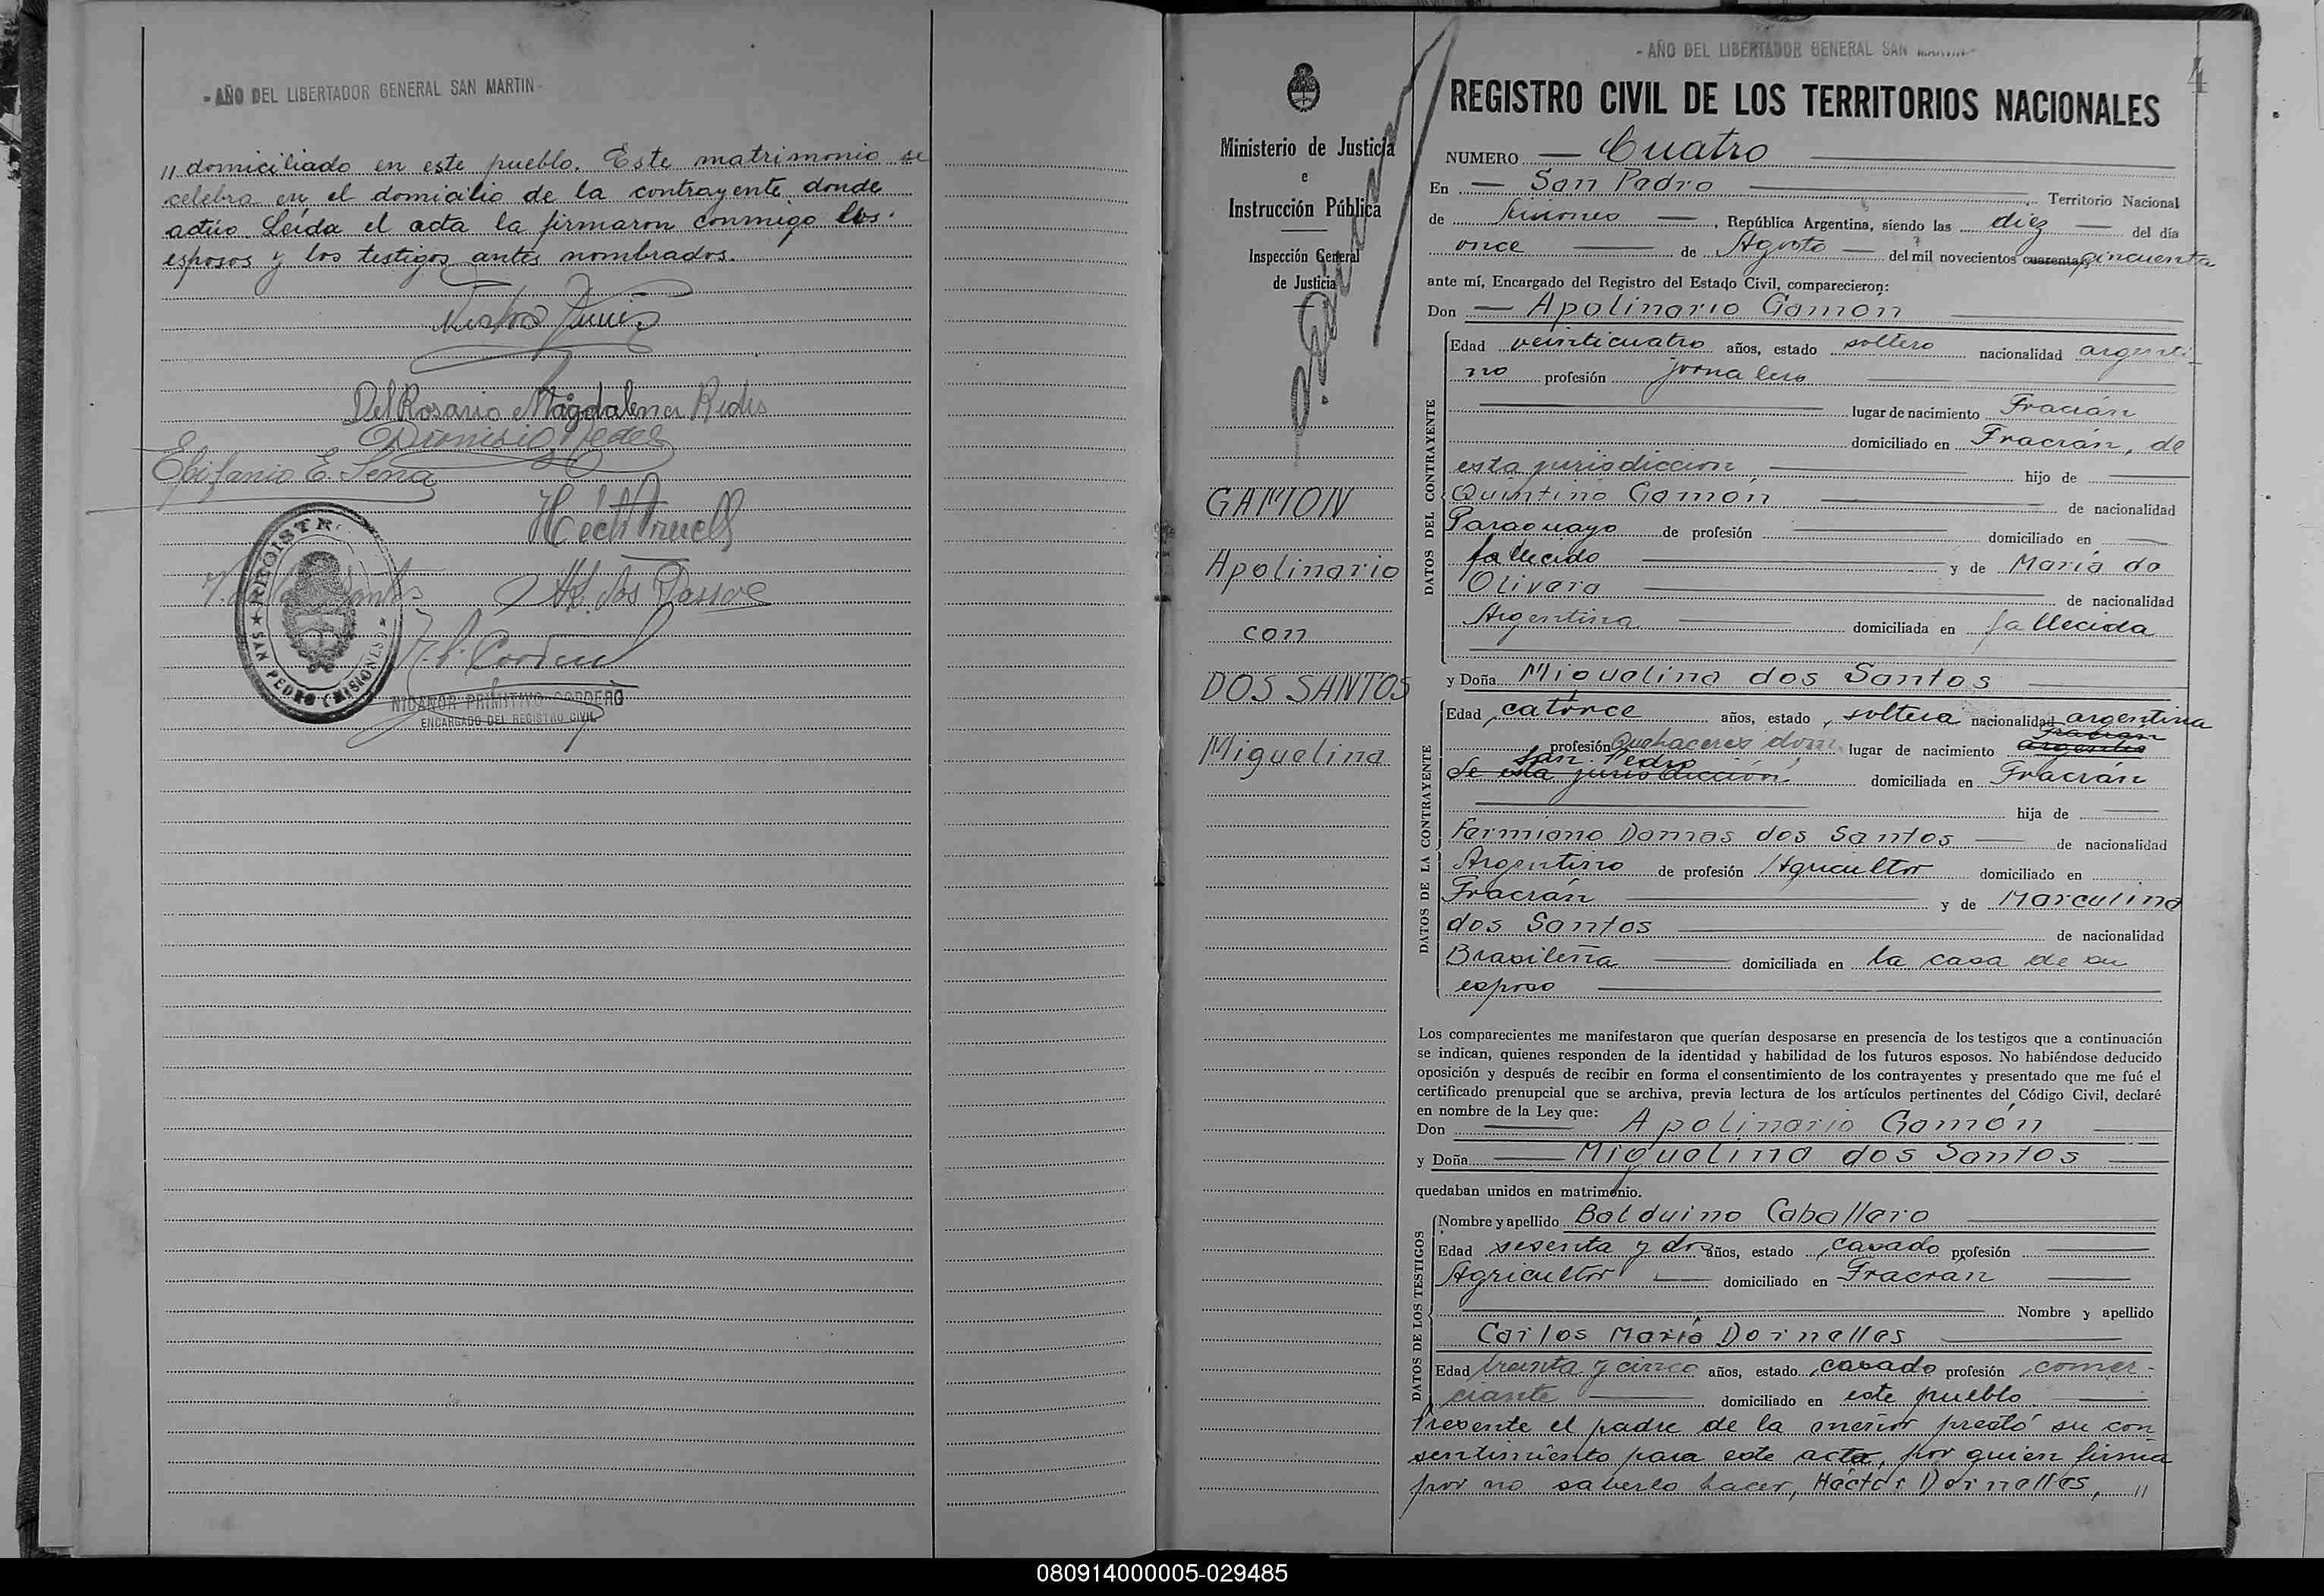 - AÑO DEL LIBERTADOR GENERAL SAN MARTIN -
// domiciliado en este pueblo. Este matrimonio se
celebra en el domicilio de la contrayente donde
actúo. Leída el acta la firmaron conmigo los
esposos y los testigos antes nombrados.
Del Rosario Magdalena Redes
Dionisio Redes
Epifanio E. Sena
REGISTR
SAN PEDRO (MISIONES)
NICANOR PRIMITIVO CORDERO
ENCARGADO DEL REGISTRO CIVIL
Ministerio de Justicia
e
Instrucción Pública
Inspección General
de Justicia
GAMON
Apolinario
con
DOS SANTOS
Miguelina
- AÑO DEL LIBERTADOR GENERAL SAN
4
REGISTRO CIVIL DE LOS TERRITORIOS NACIONALES
NUMERO Cuatro
En San Pedro Territorio Nacional
de Misiones, República Argentina, siendo las diez del día
once de Agosto del mil novecientos cuarenta cincuenta
ante mí, Encargado del Registro del Estado Civil, comparecieron:
Don Apolinario Gamón
DATOS DEL CONTRAYENTE
Edad veinticuatro años, estado soltero nacionalidad argenti
no profesión jornalero
lugar de nacimiento Fracrán
domiciliado en Fracrán, de
esta jurisdiccion hijo de
Quintino Gamón de nacionalidad
Paraguayo de profesión domiciliado en
fallecido y de María de
Olivera de nacionalidad
Argentina domiciliada en fallecida
y Doña Miguelina dos Santos
DATOS DE LA CONTRAYENTE
Edad catorce años, estado soltera nacionalidad argentina
profesión Quehaceres dom. lugar de nacimiento Fracran
San Pedro
de esta jurisdicción domiciliada en Fracrán
hija de
Fermiano Damas dos Santos de nacionalidad
Argentino de profesión Agricultor domiciliado en
Fracrán y de Marculina
dos Santos de nacionalidad
Brasileña domiciliada en la casa de su
esposo
Los comparecientes me manifestaron que querían desposarse en presencia de los testigos que a continuación
se indican, quienes responden de la identidad y habilidad de los futuros esposos. No habiéndose deducido
oposición y después de recibir en forma el consentimiento de los contrayentes y presentado que me fué el
certificado prenupcial que se archiva, previa lectura de los artículos pertinentes del Código Civil, declaré
en nombre de la Ley que:
Don Apolinario Gamón
y Doña Miguelina dos Santos
quedaban unidos en matrimonio.
DATOS DE LOS TESTIGOS
Nombre y apellido Balduino Caballero
Edad sesenta y dos años, estado casado profesión
Agricultor domiciliado en Fracrán
Nombre y apellido
Carlos María Dornelles
Edad treinta y cinco años, estado casado profesión comer-
ciante domiciliado en este pueblo
Presente el padre de la menor prestó su con
sentimiento para este acto, por quien firma
por no saberlo hacer, Héctor Dornelles, //
080914000005-029485